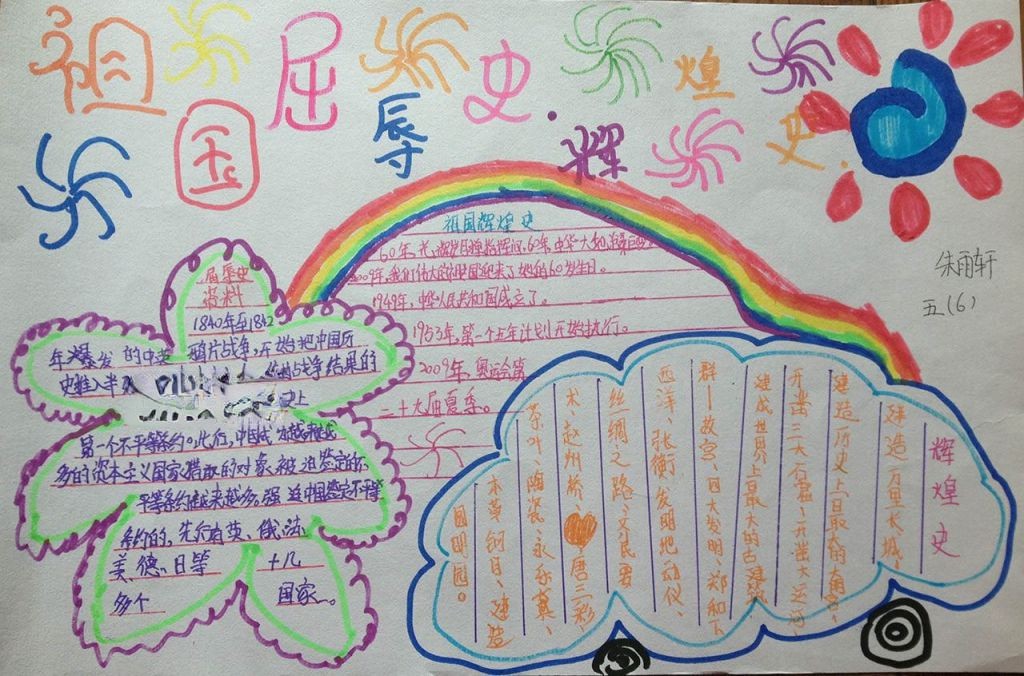 祖国屈辱史.辉煌史.
朱雨轩
五(6)
屈辱史
资料
1840年至1842
年爆发的中英鸦片战争,开始把中国历
史推入半
战争结果的
史上
第一个不平等条约。此后,中国成为越来越
多的资本主义国家猎取的对象,被迫签定的不
平等条约越来越多。强迫中国签定不平等
条约的,先后有英、俄、法、
美、德、日等十几
多个国家。
祖国辉煌史
60年,光
2009年,我们伟大的祖国迎来了她的60岁生日。
1949年,中华人民共和国成立了。
1953年,第一个五年计划开始执行。
2009年,奥运会第
二十九届夏季。
辉煌史
建造万里长城、
建造历史上最大的
开凿三大石窟、开凿大运河、
建成世界上最大的古建筑
群——故宫、四大发明、郑和下
西洋、张衡发明地动仪、
丝绸之路、文
术、赵州桥、唐三彩
茶叶、陶瓷、永乐
本草纲目、建造
圆明园。